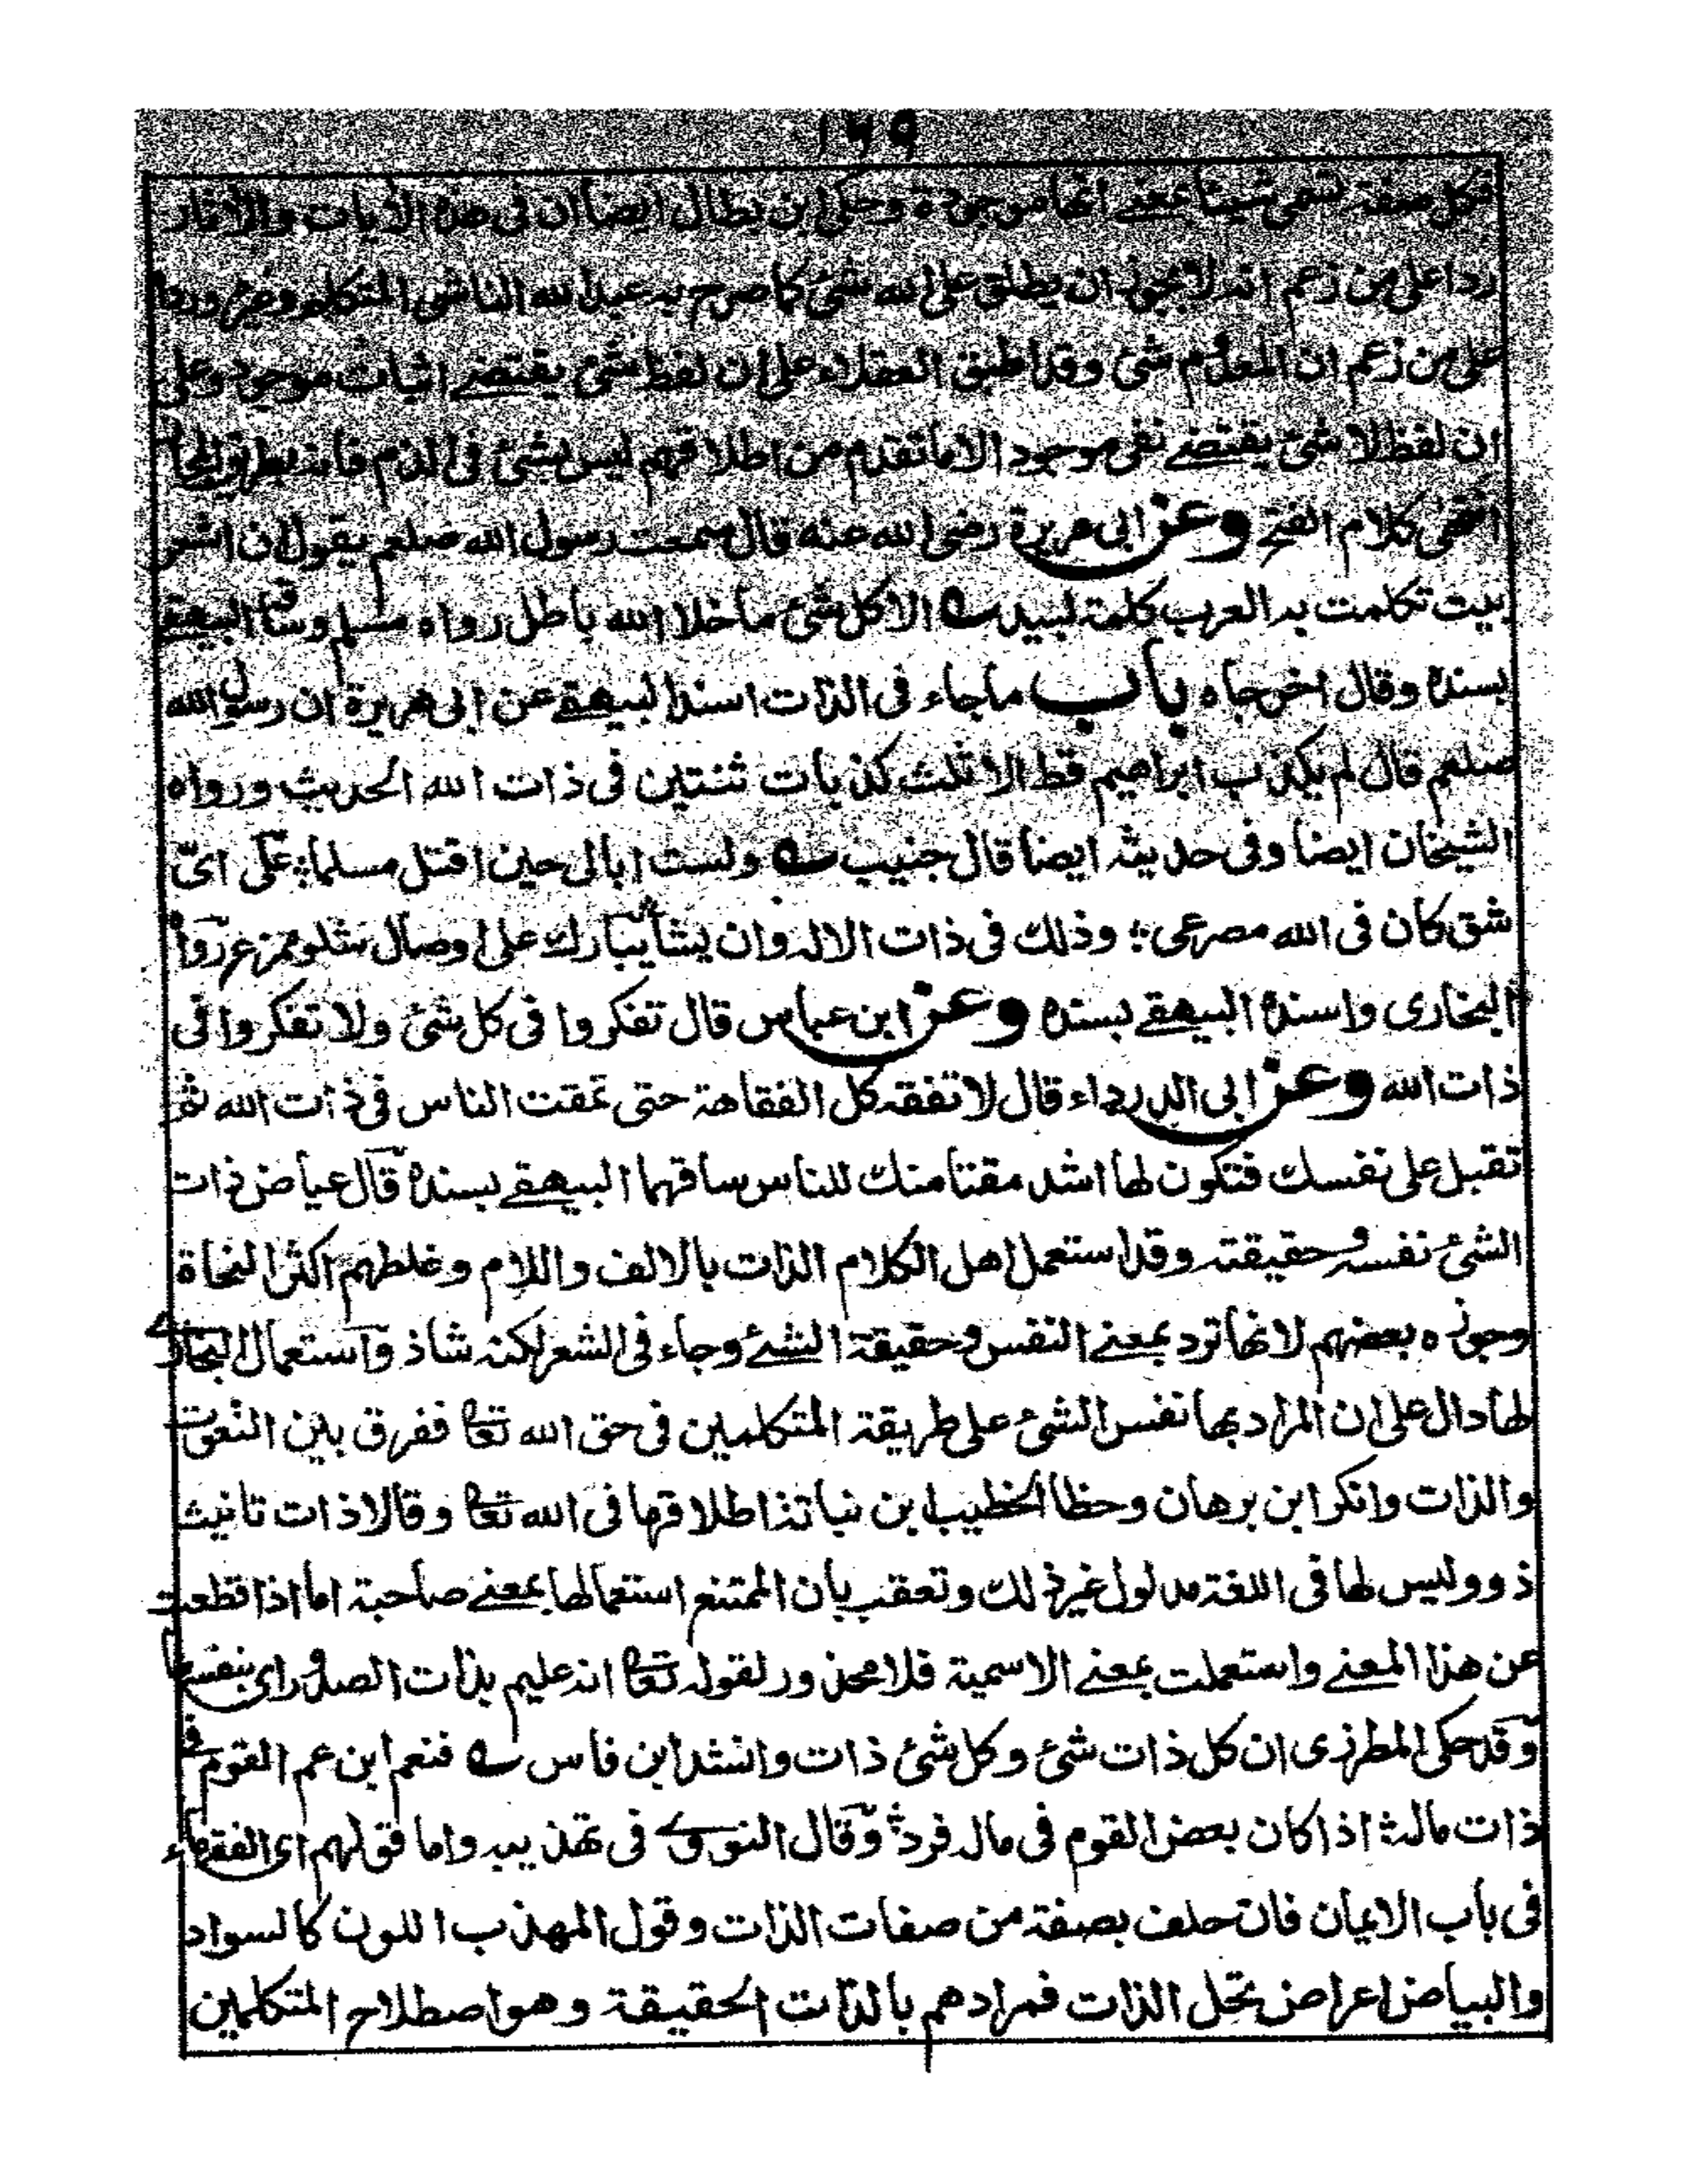 ١٤٩
فكل صفة تسمى شيئا بمعنے انها موجودة وحكى ابن بطال ايضا ان فى هذه الآيات والآثار
ردا على من زعم انه لا يجوز ان يطلق على الله شئ كما صرح به عبد الله الناشى المتكلم وغيره وردا
على من زعم ان المعدوم شئ وقد اطبق العقلاء على ان لفظ شئ يقتضے اثبات موجود وعلى
ان لفظ لا شئ يقتضے نفى موجود الا ما تقدم من اطلاقهم ليس بشئ فى الذم فانه بطريق المجاز
انتهى كلام الفتح وعن ابى هريرة رضى الله عنه قال سمعت رسول الله صلعم يقول ان اشعر
بيت تكلمت به العرب كلمة لبيد ؎ الا كل شئ ما خلا الله باطل رواه مسلم وساقه البيهقے
بسنده وقال اخرجاه باب ما جاء فى الذات اسند البيهقے عن ابى هريرة ان رسول الله
صلعم قال لم يكذب ابراهيم قط الا ثلث كذبات ثنتين فى ذات الله الحديث ورواه
الشيخان ايضا وفى حديثه ايضا قال جنيب ؎ ولست ابالى حين اقتل مسلما؛ على اىّ
شق كان فى الله مصرعى؛ وذلك فى ذات الاله وان يشأ؛ يبارك على اوصال شلو ممزع رواه
البخارى واسنده البيهقے بسنده وعن ابن عباس قال تفكروا فى كل شئ ولا تفكروا فى
ذات الله وعن ابى الدرداء قال لا تفقه كل الفقاهة حتى تمقت الناس فى ذات الله ثم
تقبل على نفسك فتكون لها اشد مقتا منك للناس ساقهما البيهقے بسنده قال عياض ذات
الشئ نفسه وحقيقته وقد استعمل اهل الكلام الذات بالالف واللام وغلطهم اكثر النحاة
وجوزه بعضهم لانها ترد بمعنے النفس وحقيقة الشئے وجاء فى الشعر لكنه شاذ واستعمال البخارے
لها دال على ان المراد بها نفس الشئ على طريقة المتكلمين فى حق الله تعا ففرق بين النعوت
والذات وانكر ابن برهان وحظا الخطيب ابن نباتة اطلاقها فى الله تعا وقالا ذات تانيث
ذو وليس لها فى اللغة مدلول غير ذلك وتعقب بان الممتنع استعمالها بمعنے صاحبة اما اذا قطعت
عن هذا المعنے واستعملت بمعنے الاسمية فلا محذور لقوله تعا انه عليم بذات الصدور اى بنفسها
وقد حكى المطرزى ان كل ذات شئ وكل شئ ذات وانشد ابن فاس ؎ فنعم ابن عم القوم فى
ذات ماله؛ اذا كان بعض القوم فى ماله فرد؛ وقال النووے فى تهذيبه واما قولهم اى الفقهاء
فى باب الايمان فان حلف بصفة من صفات الذات وقول المهذب اللون كالسواد
والبياض اعراض تحل الذات فمرادهم بالذات الحقيقة وهو اصطلاح المتكلمين